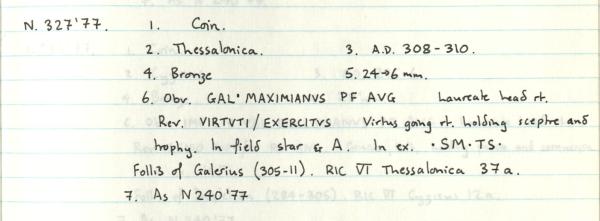 N. 327'77. 1. Coin.
2. Thessalonica. 3. A.D. 308-310.
4. Bronze 5. 24→6 mm.
6. Obv. GAL' MAXIMIANVS PF AVG Laureate head rt.
Rev. VIRTVTI/EXERCITVS Virtus going rt. holding sceptre and
trophy. In field star & A. In ex. ·SM·TS·
Follis of Galerius (305-11). RIC VI Thessalonica 37a.
7. As N 240'77